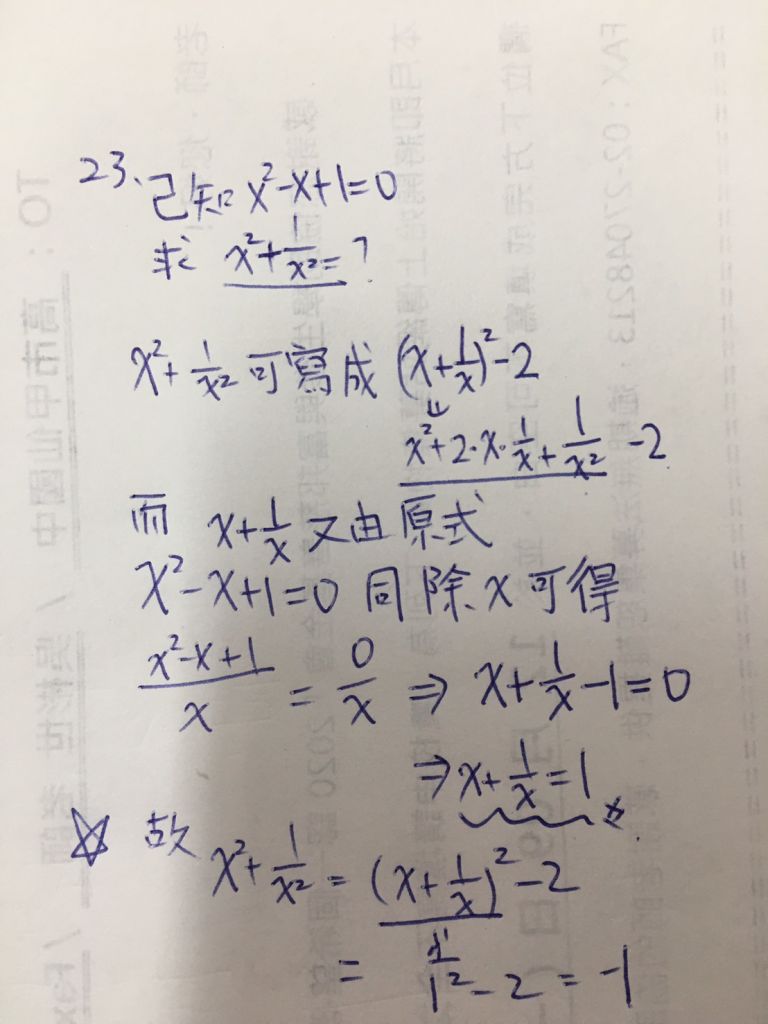 23. 已知 x²-x+1=0
求 x²+1/x²=?
x²+1/x² 可寫成 (x+1/x)²-2
x²+2·x·1/x+1/x² -2
而 x+1/x 又由原式
x²-x+1=0 同除x可得
(x²-x+1)/x = 0/x ⇒ x+1/x-1=0
⇒ x+1/x=1
☆ 故 x²+1/x² = (x+1/x)²-2
= 1²-2 = -1